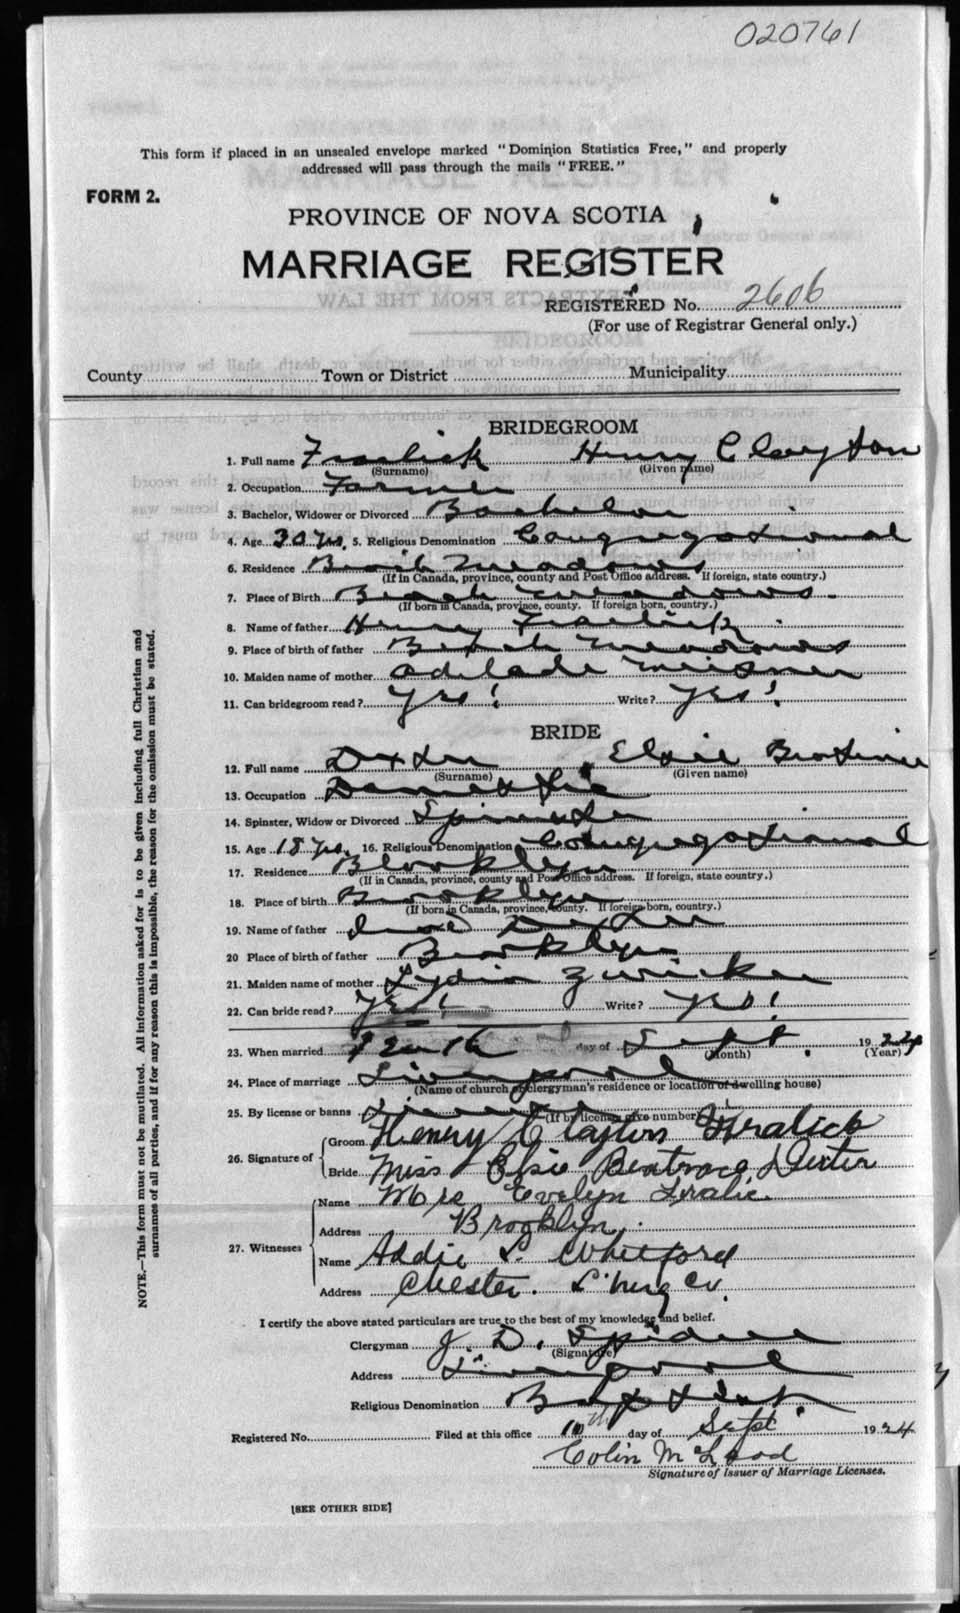 020761
This form if placed in an unsealed envelope marked "Dominion Statistics Free," and properly
addressed will pass through the mails "FREE."
FORM 2.
PROVINCE OF NOVA SCOTIA
MARRIAGE REGISTER
REGISTERED No. 2606
(For use of Registrar General only.)
County Town or District Municipality
BRIDEGROOM
1. Full name Fralick Henry Clayton
(Surname) (Given name)
2. Occupation Farmer
3. Bachelor, Widower or Divorced Bachelor
4. Age 30 yrs. 5. Religious Denomination Congregational
6. Residence Beach Meadows
(If in Canada, province, county and Post Office address. If foreign, state country.)
7. Place of Birth Beach Meadows.
(If born in Canada, province, county. If foreign born, country.)
8. Name of father Henry Fralick
9. Place of birth of father Beach Meadows
10. Maiden name of mother Adelade Meisner
11. Can bridegroom read? Yes! Write? Yes!
BRIDE
12. Full name Dexter Elsie
(Surname) (Given name)
13. Occupation Domestic
14. Spinster, Widow or Divorced Spinster
15. Age 18 yrs. 16. Religious Denomination Congregational
17. Residence Brooklyn
(If in Canada, province, county and Post Office address. If foreign, state country.)
18. Place of birth Brooklyn
(If born in Canada, province, county. If foreign born, country.)
19. Name of father Dexter
20 Place of birth of father Brooklyn
21. Maiden name of mother Lydia Zwicker
22. Can bride read? Yes! Write? Yes!
23. When married Tenth day of Sept. 1924
(Month) (Year)
24. Place of marriage Liverpool
(Name of church or clergyman's residence or location of dwelling house)
25. By license or banns License
(If by license give number)
26. Signature of Groom Henry Clayton Fralick
Bride Miss Elsie Beatrace Dexter
27. Witnesses Name Mrs Evelyn Fralic
Address Brooklyn.
Name Addie L. Whitford
Address Chester. L'burg Co.
I certify the above stated particulars are true to the best of my knowledge and belief.
Clergyman J. D. Spidell
(Signature)
Address Liverpool
Religious Denomination Baptist
Registered No. Filed at this office 10th day of Sept 1924
Colin McLeod
Signature of Issuer of Marriage Licenses.
[SEE OTHER SIDE]
NOTE.—This form must not be mutilated. All information asked for is to be given including full Christian and
surnames of all parties, and if for any reason this is impossible, the reason for the omission must be stated.